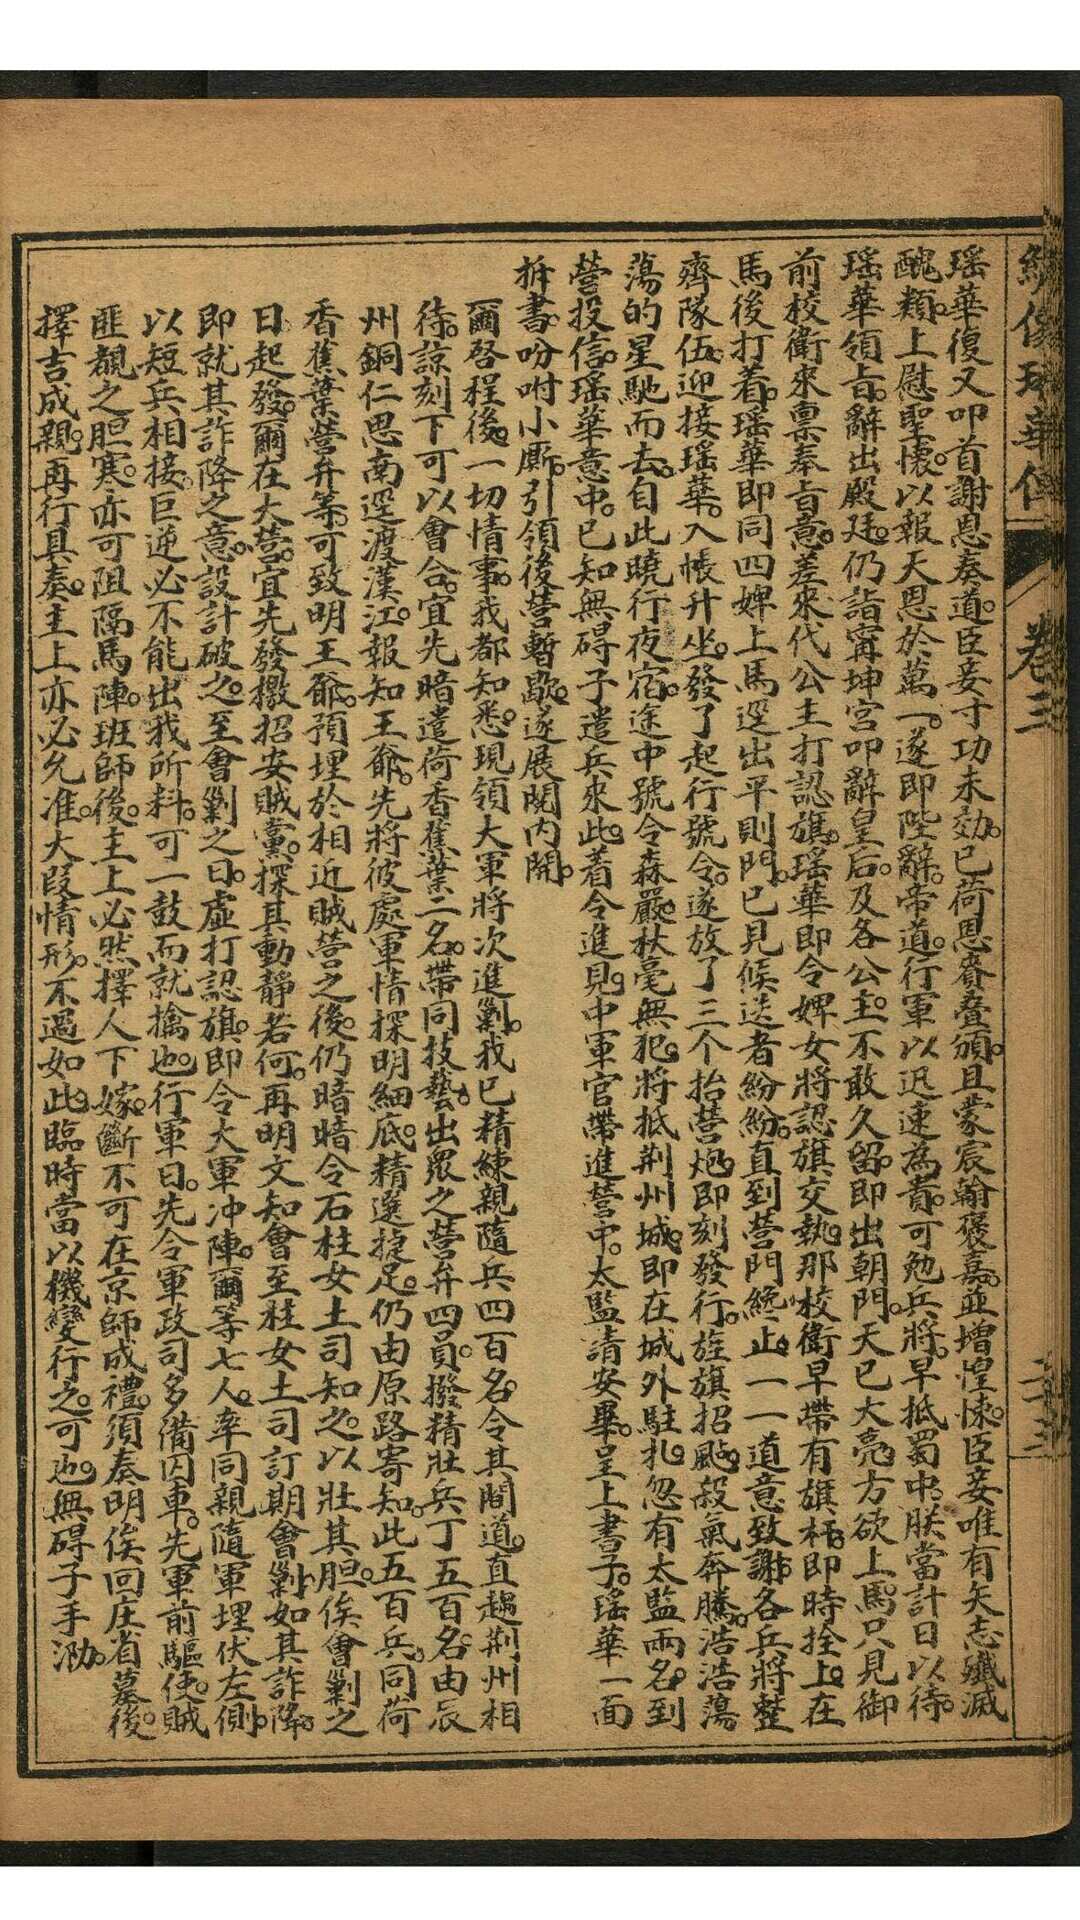 繡像瑤華傳 卷三 二三
瑶華復又叩首謝恩奏道。臣妾寸功未効。已荷恩賚叠頒。且蒙宸翰褒嘉。並增惶悚。臣妾唯有矢志殲滅
醜類。上慰聖懷。以報天恩於萬一。遂即陛辭。帝道。行軍以迅速為貴。可勉兵將。早抵蜀中。朕當計日以待。
瑶華領旨。辭出殿廷。仍詣寗坤宫叩辭皇后。及各公主。不敢久留。即出朝門。天已大亮。方欲上馬。只見御
前校衛來禀奉旨意。差來代公主打認旗。瑶華即令婢女將認旗交執。那校衛早帶有旗杆。即時拴上。在
馬後打着。瑶華即同四婢上馬。逕出平則門。已見候送者紛紛。直到營門纔止。一一道意致謝。各兵將整
齊隊伍。迎接瑶華。入帳升坐。發了起行號令。遂放了三个抬營炮。即刻發行。旌旗招颭。殺氣奔騰。浩浩蕩
蕩的星馳而去。自此曉行夜宿。途中號令森嚴。秋毫無犯。將抵荆州城。即在城外駐扎。忽有太監兩名。到
營投信。瑶華意中。已知無碍子遣兵來此。着令進見。中軍官帶進營中。太監請安畢。呈上書子。瑶華一面
拆書。吩咐小厮。引領後營暫歇。遂展閱内開。
爾啓程後。一切情事。我都知悉。現領大軍將次進剿。我已精練親隨兵四百名。令其間道。直趨荆州相
待。諒刻下可以會合。宜先暗遣荷香蕉葉二名。帶同技藝出眾之營弁四員。撥精壯兵丁五百名。由辰
州銅仁思南逕渡漢江。報知王爺。先將彼處軍情探明細底。精選捷足。仍由原路寄知。此五百兵。同荷
香蕉葉營弁等。可致明王爺。預埋於相近賊營之後。仍暗暗令石柱女土司知之。以壯其胆。俟會剿之
日。起發。爾在大營。宜先發檄招安賊黨。探其動靜若何。再明文知會至柱女土司訂期會剿。如其詐降。
即就其詐降之意。設計破之。至會剿之日。虚打認旗。即令大軍冲陣。爾等七人。率同親隨軍埋伏左側。
以短兵相接。巨逆必不能出我所料。可一鼓而就擒也。行軍日。先令軍政司多備囚車。先軍前驅使。賊
匪覩之胆寒。亦可阻隔馬陣。班師後。主上必然擇人下嫁。斷不可在京師成禮。須奏明俟回庄省墓後。
擇吉成親。再行具奏。主上亦必允准。大叚情形。不過如此。臨時當以機變行之。可也。無碍子手泐。